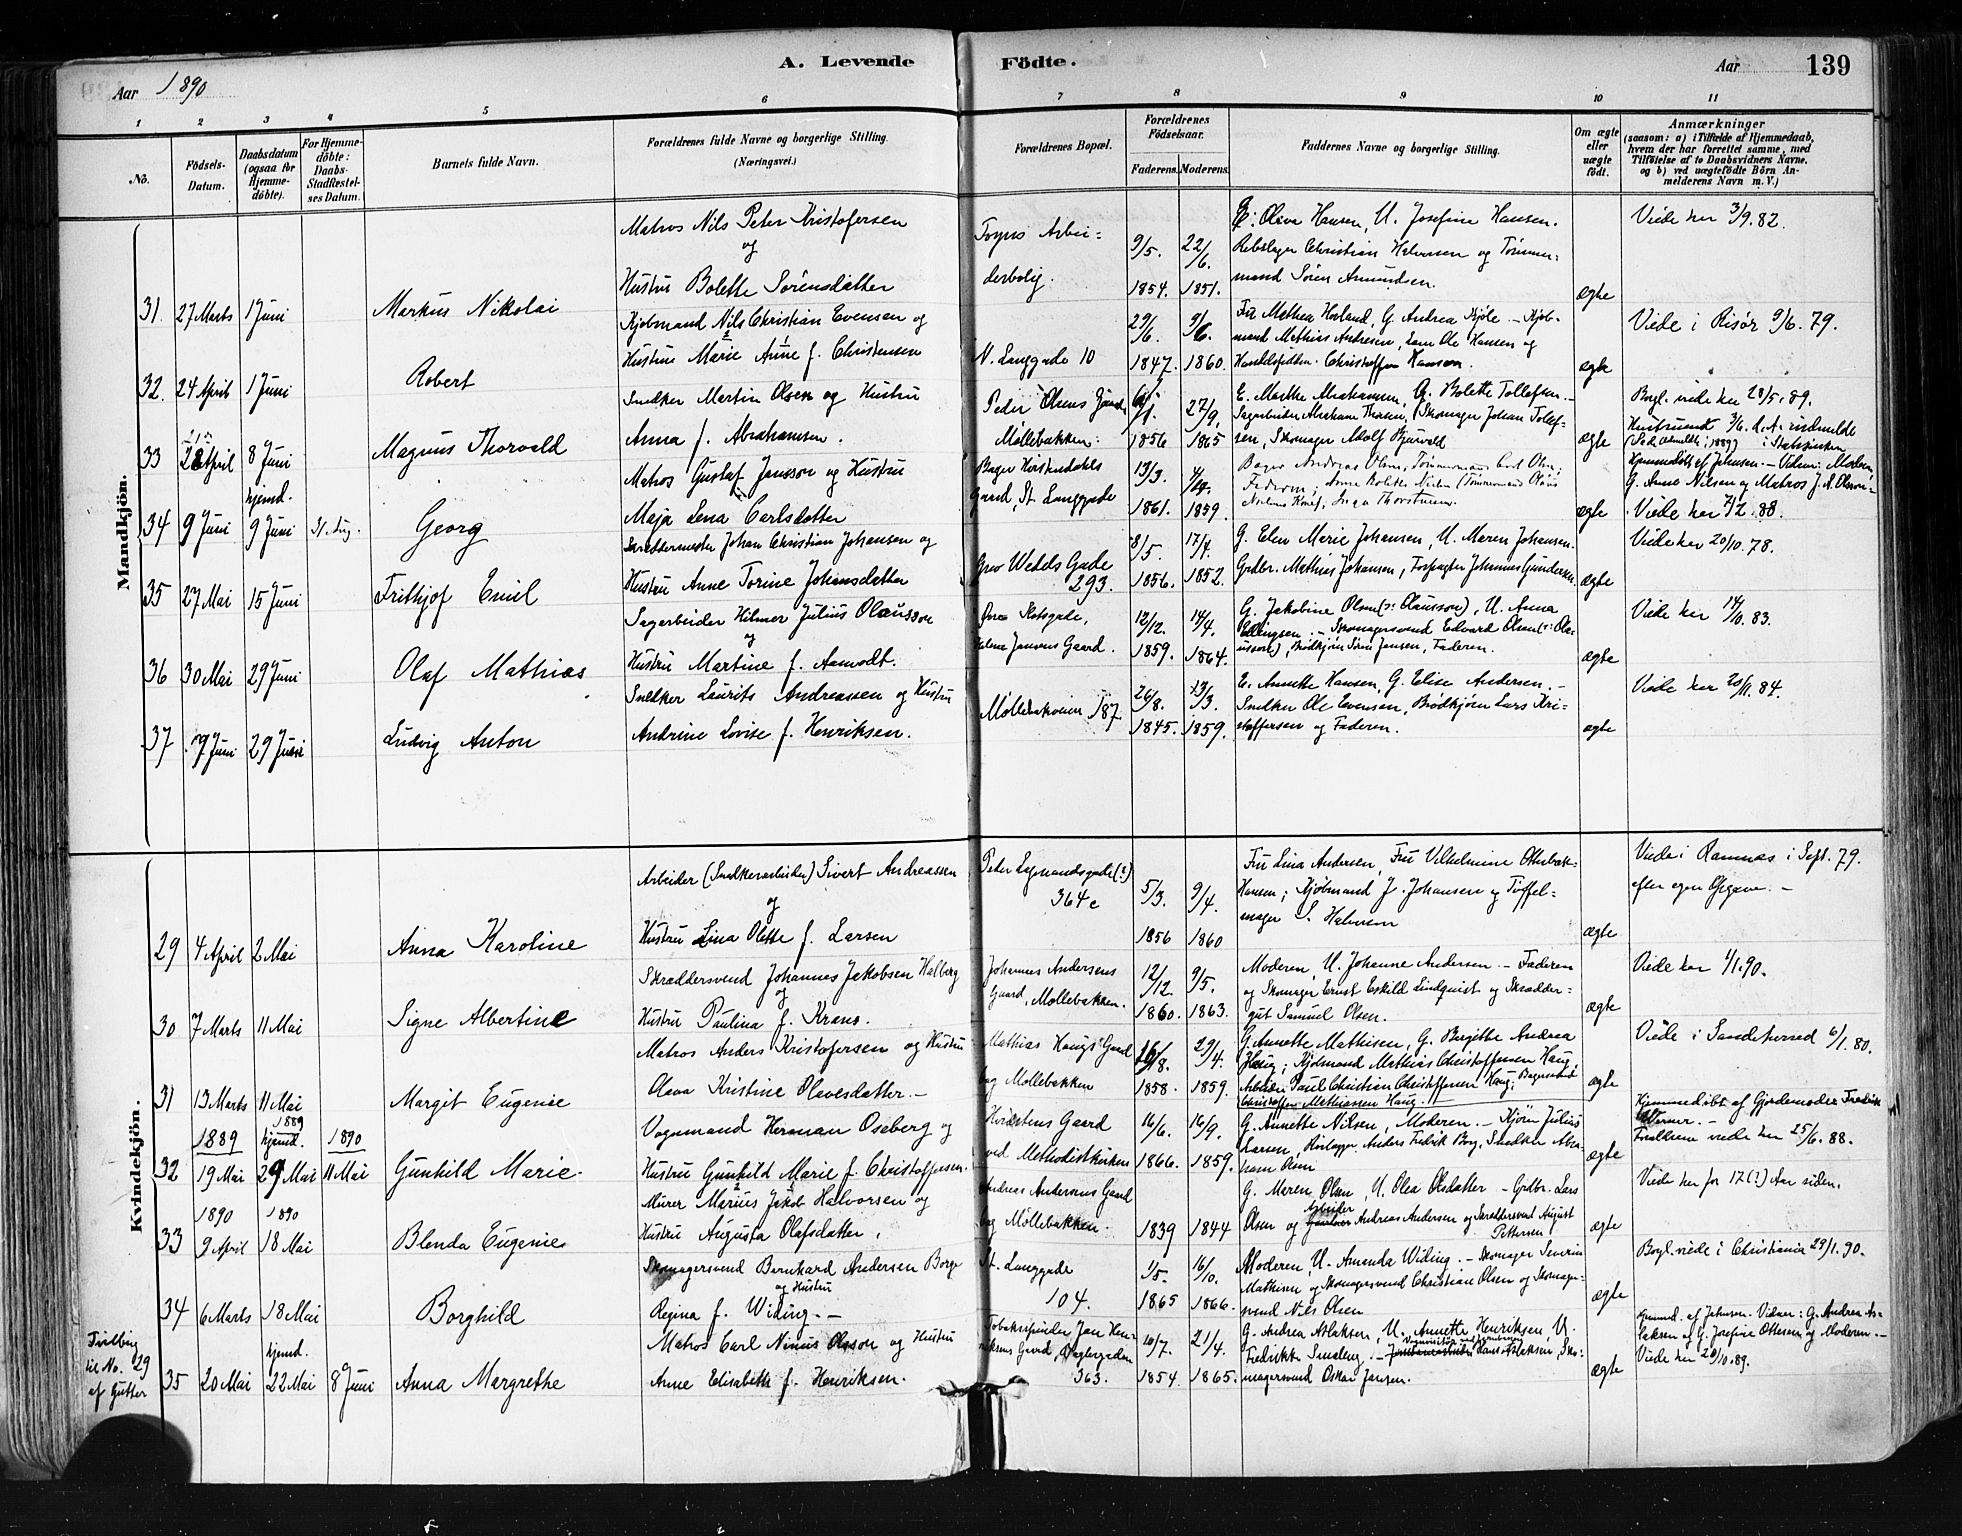 Aar 1890
A. Levende
Födte.
Aar
139
1 2 3 4 5 6 7 8 9 10 11
No.
Födsels-Datum.
Daabsdatum (ogsaa for Hjemme-döbte).
For Hjemme-döbte: Daabs-Stadfæstel-ses Datum.
Barnets fulde Navn.
Forældrenes fulde Navne og borgerlige Stilling. (Næringsvei.)
Forældrenes Bopæl.
Forældrenes Födselsaar.
Faderens. Moderens.
Faddernes Navne og borgerlige Stilling.
Om ægte eller uægte födt.
Anmærkninger
(saasom: a) i Tilfælde af Hjemmedaab, hvem der har forrettet samme, med Tilföielse af to Daabsvidners Navne, og b) ved uægtefödte Börn An-melderens Navn m. V.)
Mandkjön.
31. 27 Marts 1 Juni Markus Nikolai
Matros Nils Peter Kristofersen
og
Hustru Bolette Sørensdatter
Foyns Arbei-
derbolig.
9/5. 1854. 22/6. 1851.
E: Oliva Hansen, U. Josefine Hansen.
Rebslager Christian Halvorsen og Tømmer-
mand Søren Amundsen.
ægte
Viede her 3/9. 82.
32. 24 April 1 Juni Robert
Kjøbmand Nils Christian Evensen og
Hustru Marie Anne f. Christensen
N. Langgade 10
29/6. 1847. 9/6. 1860.
Fru Mathea Horland, G. Andrea Kjøle - Kjøb-
mand Mathias Andresen, Ole Hansen og
Christoffer Hanson.
ægte
Viede i Risør 9/6. 79.
33 April 8 Juni Magnus Thorvald
Snedker Martin Olsen og Hustru
Anna f. Abrahamsen.
Peder Olsens Gaard
Møllebakken.
1856 27/9. 1865
E. Marthe Abrahamsen, G. Bolette Tollefsen.
Sagarbeider Abraham Thorsen, Skomager Johan Tollef-
sen, Skomager Adolf
ægte
Borgl. viede her 28/5. 89.
34 9 Juni hjemd. 9 Juni 31. Aug. Georg
Matros Gustaf Jansson og Hustru
Maja Lena Carlsdatter
Bager
Gaard, St. Langgade
13/3. 1861. 1859.
Bager Andreas Olsen, Tømmermand Carl Olsen,
Faderen, Anne Nilsen (Tømmermand Olaus
Nielsens Kone), Inga Thorstensen.
ægte
Hjemmedøbt af Johnsen. - Vidner: Moderen
G. Anne Nilsen og Matros J. A. Olsson.
Viede her 7/2. 88.
35 27 Mai 15 Juni Frithjof Emil
Skræddermester Johan Christian Johansen og
Hustru Anne Torine Johansdatter
Grev Wedels Gade
293.
8/5. 1856. 17/4. 1852.
G. Elen Marie Johansen, U. Maren Johansen.
Grdbr. Mathias Johansen, Forpagter Johannes Gundersen.
ægte
Viede her 20/10. 78.
36 30 Mai 29 Juni Olaf Mathias
Sagarbeider Hilmer Julius Olausson
og
Hustru Martine f. Aamodt.
Gaard.
12/12. 1859. 14/4. 1864.
G. Jakobine Olsen (ɔ: Olausson), U. Anna
Ellingsen. - Skomagersvend Edvard Olsen (ɔ: Ola-
usson), Brødkjører Jansen, Faderen.
ægte
Viede her 14/10. 83.
37 7 Juni 29 Juni Ludvig Anton
Snedker Laurits Andreassen og Hustru
Andrine Lovise f. Henriksen.
Møllebakveien 187
26/8. 1845. 13/3. 1859.
E. Annette Hansen, G. Elise Andersen. -
Snedker Ole Evensen, Brødkjører Lars Kri-
stoffersen og Faderen.
ægte
Viede her 20/11. 84.
Kvindekjön.
29 4 April 2 Mai Anna Karoline
Arbeider (Snedkerarbeider) Sivert Andreassen
og
Hustru Lina Olette f. Larsen
Peter (?)
364 c
5/3. 1856 9/4. 1860
Fru Lina Andersen, Fru Vilhelmine
Hansen; Kjøbmand J. Johansen og Tøffel-
mager S. Halvorsen
ægte
Viede i Ramnæs i Sept. 79.
efter egen Opgave. -
30 7 Marts 11 Mai Signe Albertine
Skræddersvend Johannes Jakobsen Halberg
og
Hustru Paulina f. Krans.
Johannes Andersens
Gaard, Møllebakken.
12/12. 1860. 9/5. 1863.
Moderen, U. Johanne Andersen. - Faderen
og Skomager Ernst Eskild Lindquist og Skrædder-
gut Samuel Olsen.
ægte
Viede her 1/1. 90.
31 13 Marts 11 Mai Margit Eugenie
Matros Anders Kristofersen og Hustru
Olava Kristine Olavesdatter. -
Mathias Haugs Gaard
bag Møllebakken
16/8. 1858. 29/4. 1859.
G. Annette Mathisen, G. Bergithe Andrea
Haug; Kjøbmand Mathias Christoffersen Haug
Arbeider Paul Christian Christoffersen Haug;
Christoffer Mathiassen Haug.
ægte
Viede i Sandeherred 6/1. 80.
32 1889 19 Mai 1889 hjemd. 29 Mai 1890 11 Mai Gunhild Marie
Vognmand Herman Oseberg og
Hustru Gunhild Marie f. Christoffersen
Gaard
ved Methodistkirken
16/6. 1866. 16/9. 1859.
G. Annette Nilsen, Moderen. - Kjører Julius
Larsen, Anders Fredrik Borg, Snedker Abra-
ham Olsen
ægte
Hjemmedøbt af Gjordemoder Fredrik
Werner. -
Forældrene viede her 25/6. 88.
33 1890 9 April 1890 18 Mai Blenda Eugenie
Murer Marius Jakob Halvorsen og
Hustru Augusta Olafsdatter.
Andreas Andersens Gaard
bag Møllebakken.
1839 1844
G. Maren Olsen, U. Olea Olsdatter - Grdbr. Lars
Olsen og Arbeider Andreas Andersen og Skræddersvend August
Pettersen
ægte
Viede her for 17 (?) Aar siden.
34 6 Marts 18 Mai Borghild
Skomagersvend Bernhard Andersen Borge
og Hustru
Regina f. Widing. -
St. Langgade
104.
1/5. 1865 16/10. 1866.
Moderen, U. Amanda Widing. - Skomager Severin
Mathisen og Skomagersvend Christian Olsen og Skomager-
svend Nils Olsen
ægte
Borgl. viede i Christiania 29/1. 90.
Tvilling
til No. 29
af Gutter
35 20 Mai hjemd. 22 Mai 8 Juni Anna Margrethe
Matros Carl Ninus Olsson og Hustru
Anne Elisabeth f. Henriksen.
Tobaksspinder Jan Hen-
riksens Gaard,
363.
10/7. 1854. 21/4. 1865.
G. Andrea Aslaksen, U. Annette Henriksen, U.
Fredrikke Smaleng. - Hans Aslaksen, Sko-
magersvend Oskar Jansen.
ægte
Hjemmd. af Johnsen. Vidner: G. Andrea As-
laksen og G. Josefine Ottersen og Moderen. -
Viede her 20/10. 89.